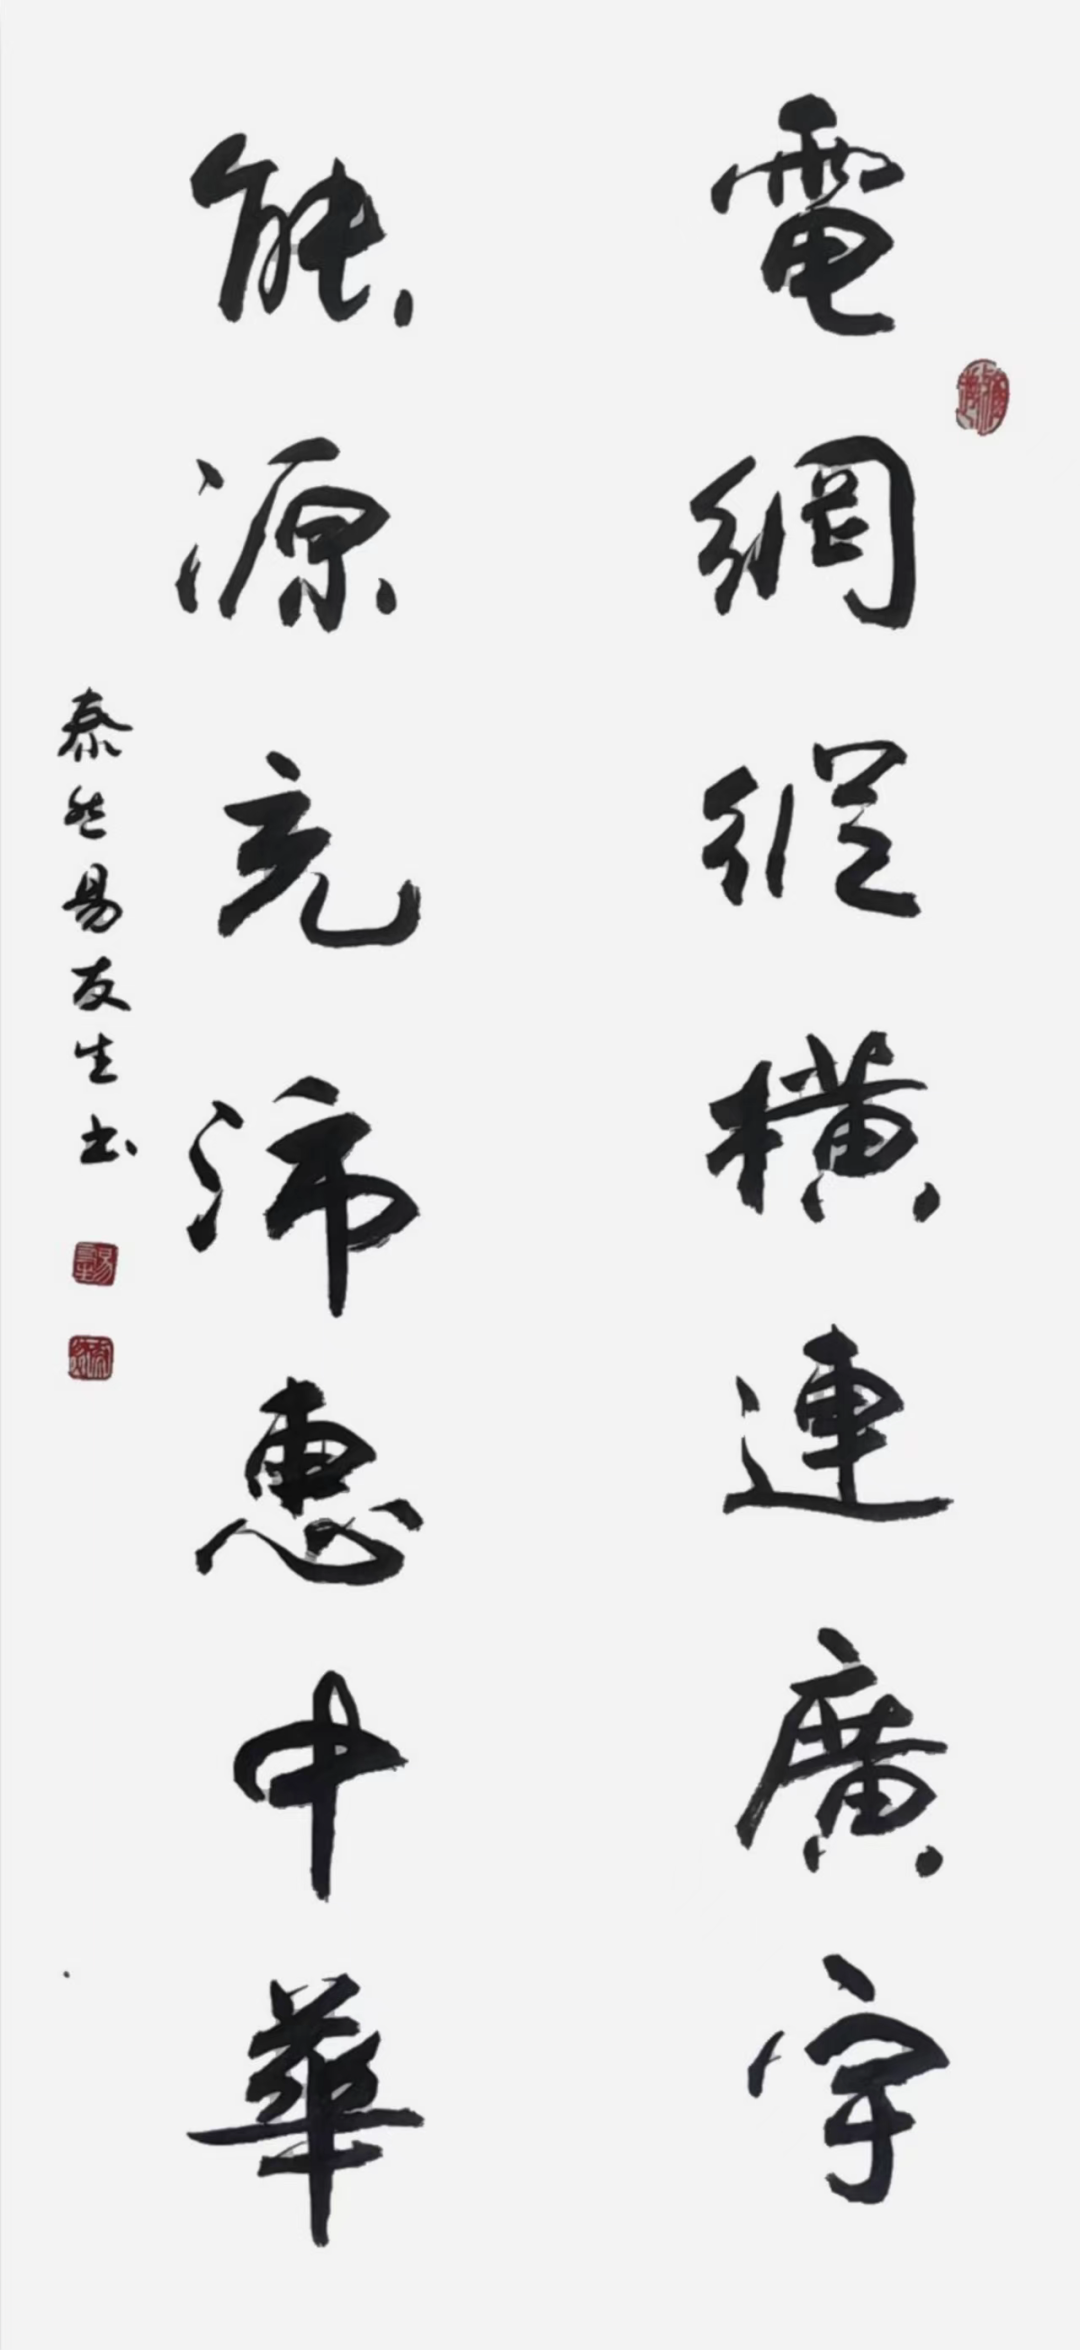 電網縱橫連廣宇
能源充沛惠中華
泰然易友生书